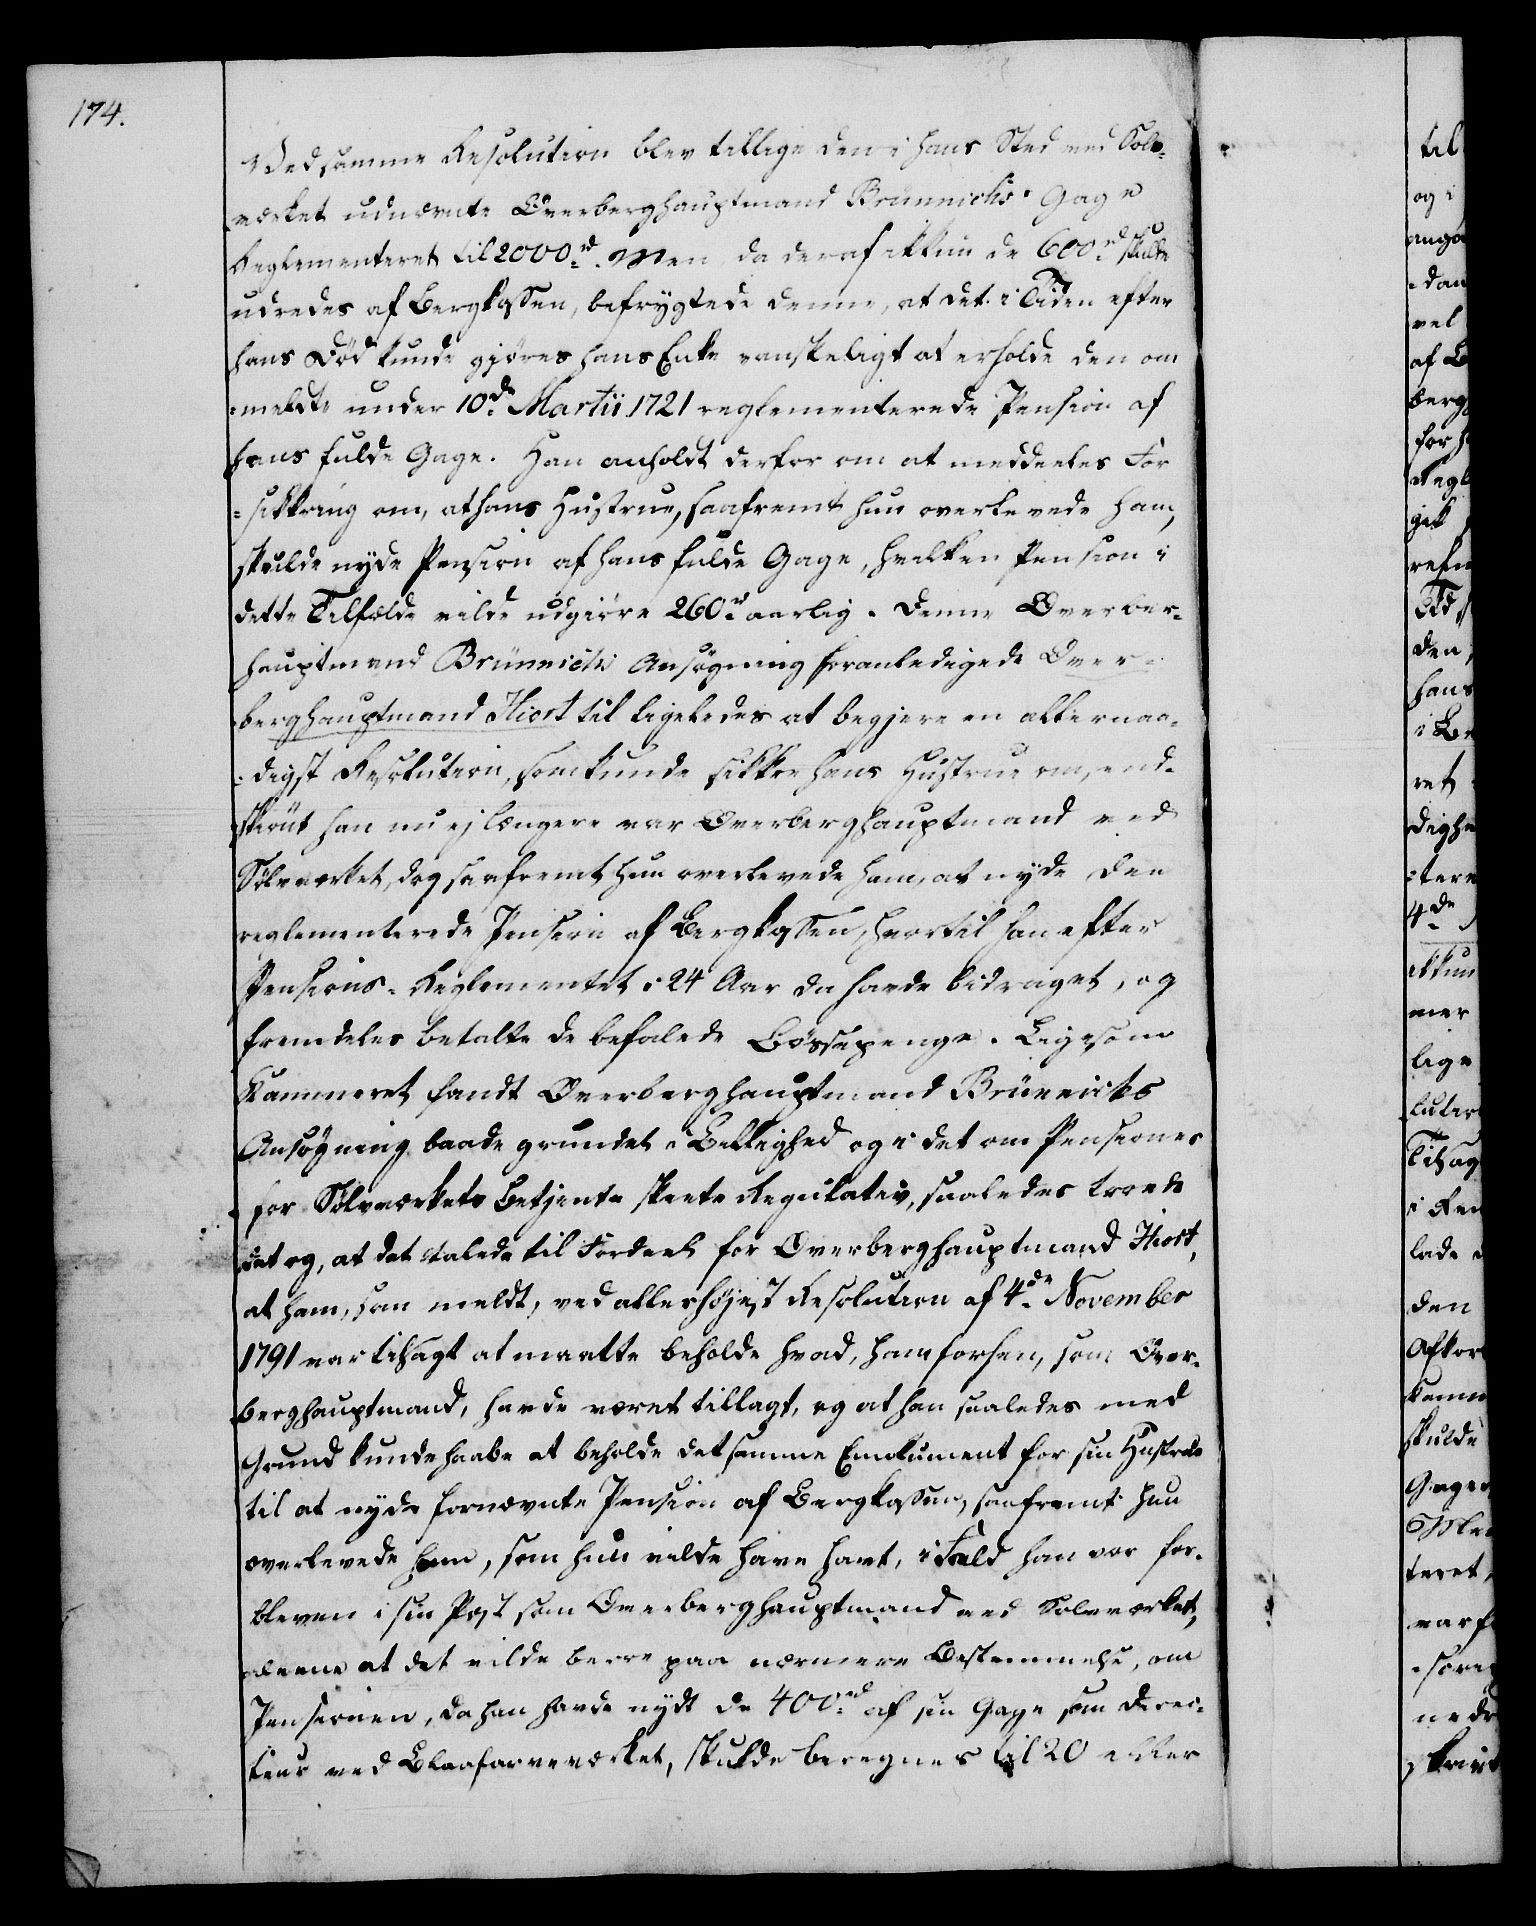 174.
Ved samme Resolution blev tillige den i hans Sted ved Sølv-
værket udnævnte Overberghauptmand Brünnichs Gage
reglementeret til 2000rd. Men da deraf ikkun de 600rd skulde
udredes af Bergkassen, befrygtede denne, at det i Tiden efter
hans Død kunde gjøres hans Enke vanskeligt at erholde den om
=meldte under 10de Martii 1721 reglementerede Pension af
hans fulde Gage. Han anholdt derfor om at meddeeles For
=sikkring om, at hans Hustrue, saafremt hun overlevede ham,
skulde nyde Pension af hans fulde Gage, hvilken Pension i
dette Tilfælde vilde udgiøre 260rd aarlig. Denne Overber-
hauptmand Brünnichs Ansøgning foranledigede Over-
berghauptmand Hiort til ligeledes at begjere en allernaa-
=digst Resolution, som kunde sikkre hans Hustrue om, end-
skiønt han nu ej længere var Overberghauptmand ved
Sølvværket, dog saafremt hun overlevede ham, at nyde den
reglementerede Pension af Bergkassen, hvortil han efter
Pensions-Reglementet i 24 Aar da havde bidraget, og
fremdeles betalte de befalede Bøssepenge. Ligesom
Kammeret fandt Overberghauptmand Brünnichs
Ansøgning baade grundet i Billighed og i det om Pensioner
for Sølvværkets Betjente skeete Regulativ, saaledes troede
det og, at det talede til Fordeel for Overberghauptmand Hiort,
at ham, som meldt, ved allerhøjest Resolution af 4de November
1791 var tilsagt at maatte beholde hvad, ham forhen, som Over-
berghauptmand, havde været tillagt, og at han saaledes med
Grund kunde haabe at beholde det samme Emolument for sin Hustrue
til at nyde fornævnte Pension af Bergkassen, saafremt hun
overlevede ham, som hun vilde have havt, i Fald han var for-
bleven i sin Post som Overberghauptmand ved Sølvværket,
aleene at det vilde beroe paa nærmere Bestemmelse, om
Pensionen, da han havde nydt de 400rd af sin Gage som Direc-
teur ved Blaafarveværket, skulde beregnes til 20 eller
til
og i
dan
vel
af
berg
for
Regl
gik
Tid
den
hans
ret
digh
4de
ikkun
mer
lige
Tilsag
lade
den
kamm
skulde
Gagen
teret,